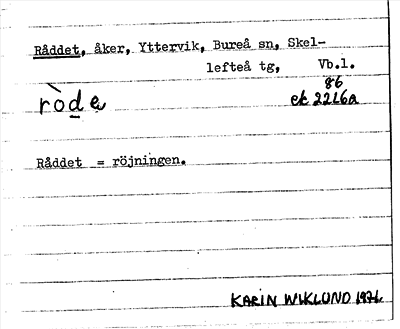 Råddet, åker, Yttervik, Bureå sn, Skel-
lefteå tg, Vb.l.
86
ròde ek 2216a
Råddet = röjningen.
KARIN WIKLUND 1976